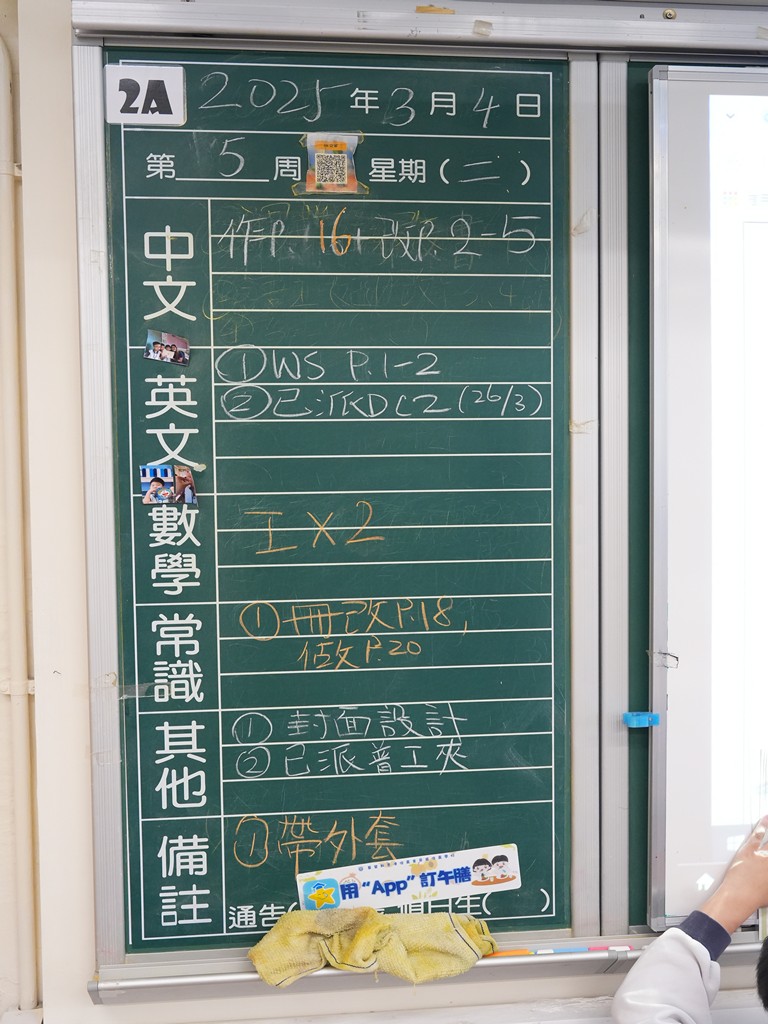 2A 2025年3月4日
第5周 星期(二)
中文
作P.16+改P.2-5
英文
①WS P.1-2
②已派KDC2(26/3)
數學
工X2
常識
①冊改P.18,
做P.20
其他
①封面設計
②已派普工夾
備註
①帶外套
用“App”訂午膳
通告(
值日生(  )